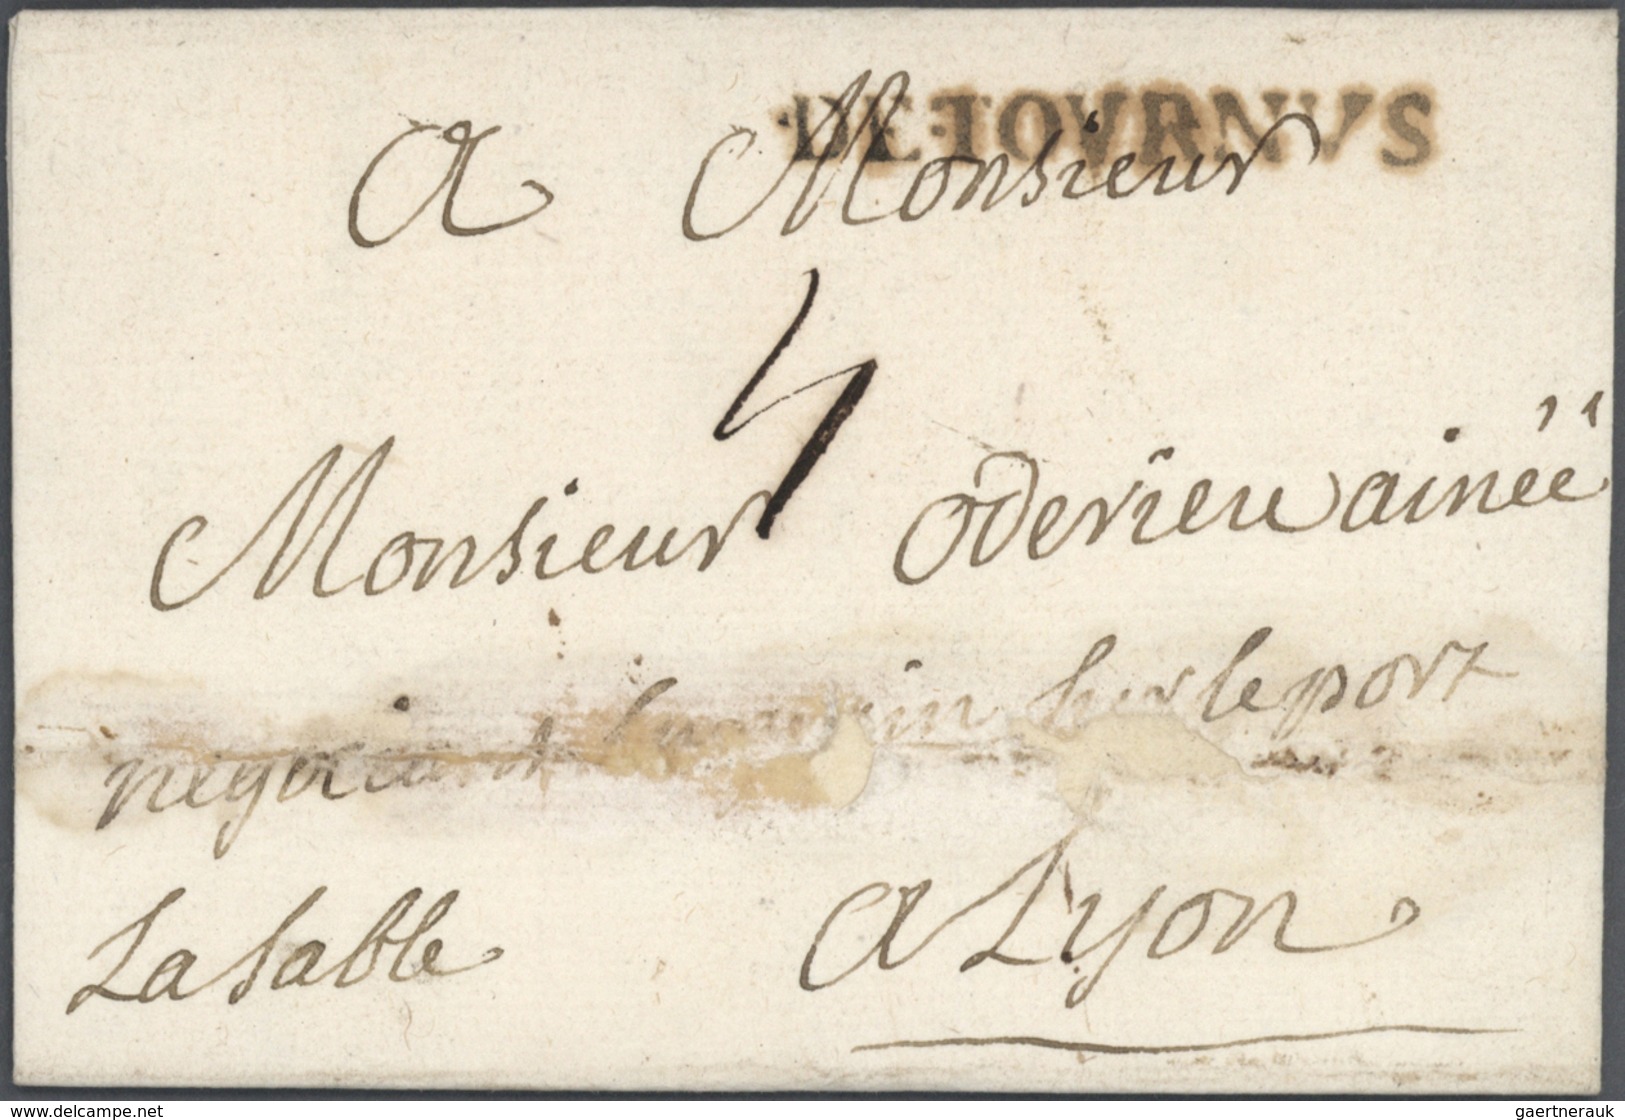 DE TOVRNVS
a Monsieur
4
Monsieur oderieu ainéé
negociant sur le port
La Sable
a Lyon
www.delcampe.net
gaertnerauk